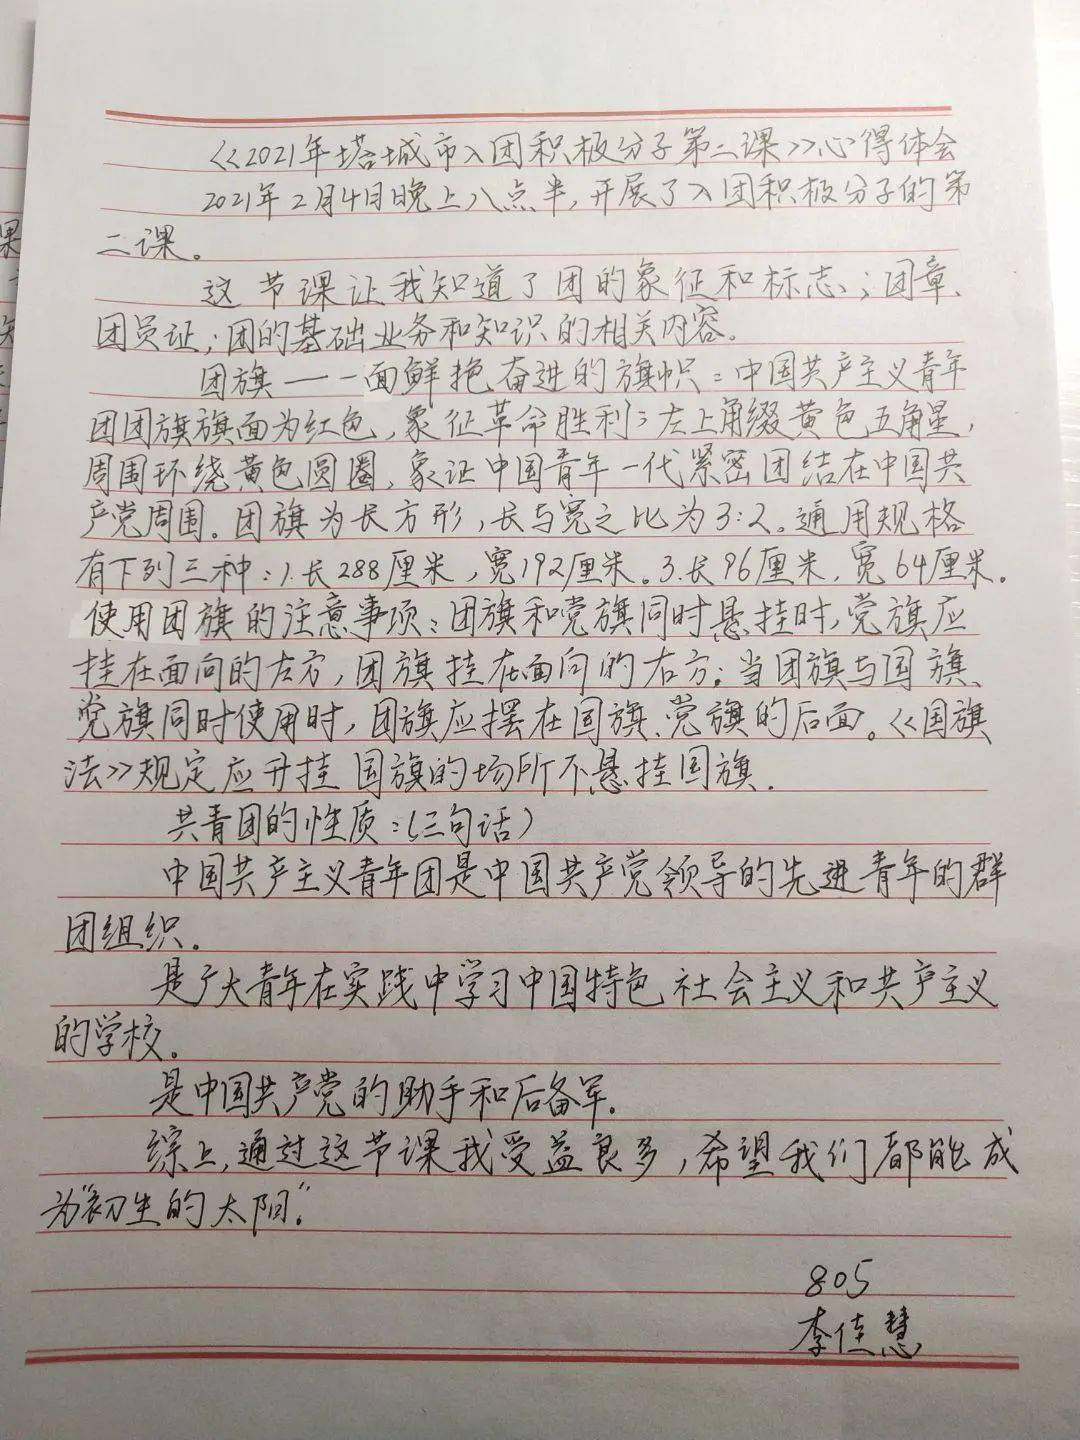 《2021年塔城市入团积极分子第二课》心得体会
2021年2月4日晚上八点半,开展了入团积极分子的第
二课。
这节课让我知道了团的象征和标志;团章、
团员证;团的基础业务和知识的相关内容。
团旗——一面鲜艳奋进的旗帜:中国共产主义青年
团团旗旗面为红色,象征革命胜利;左上角缀黄色五角星,
周围环绕黄色圆圈,象证中国青年一代紧密团结在中国共
产党周围。团旗为长方形,长与宽之比为3:2。通用规格
有下列三种:1.长288厘米,宽192厘米。3.长96厘米,宽64厘米。
使用团旗的注意事项:团旗和党旗同时悬挂时,党旗应
挂在面向的左方,团旗挂在面向的右方;当团旗与国旗、
党旗同时使用时,团旗应摆在国旗、党旗的后面。《国旗
法》规定应升挂国旗的场所不悬挂国旗.
共青团的性质:(三句话)
中国共产主义青年团是中国共产党领导的先进青年的群
团组织.
是广大青年在实践中学习中国特色社会主义和共产主义
的学校.
是中国共产党的助手和后备军.
综上,通过这节课我受益良多,希望我们都能成
为"初生的太阳."
805
李佳慧